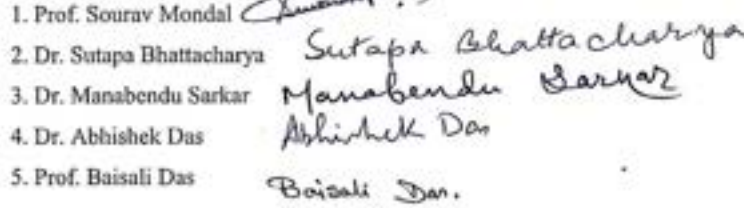 1. Prof. Sourav Mondal
2. Dr. Sutapa Bhattacharya Sutapa Bhattacharya
3. Dr. Manabendu Sarkar Manabendu Sarkar
4. Dr. Abhishek Das Abhishek Das
5. Prof. Baisali Das Baisali Das.